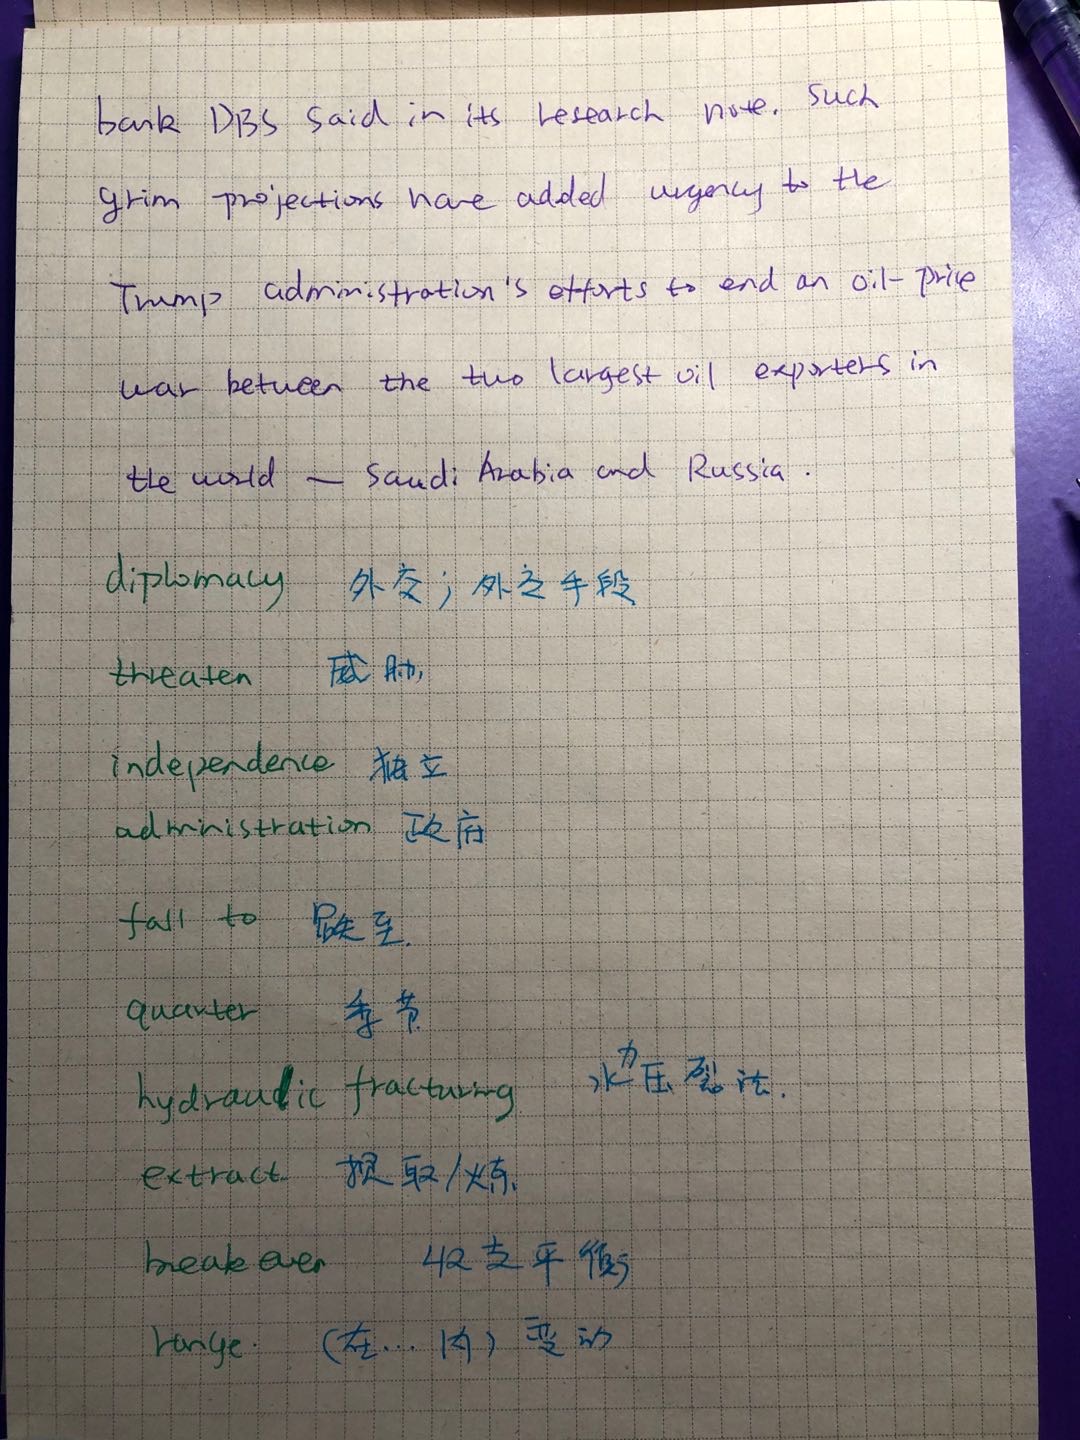 bank DBS said in its research note. Such
grim projections have added urgency to the
Trump administration's efforts to end an oil-price
war between the two largest oil exporters in
the world — Saudi Arabia and Russia.
diplomacy 外交；外交手段
threaten 威胁
independence 独立
administration 政府
fall to 跌至.
quarter 季节
hydraulic fracturing 水力压裂法.
extract 提取/炼
break even 收支平衡
range. (在...内) 变动